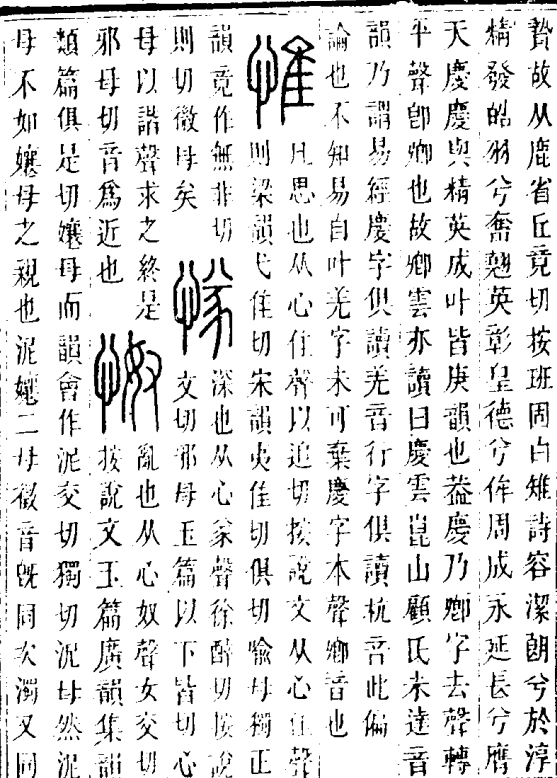 贄故从鹿省丘竟切按班固白雉詩容潔朗兮於淳
精發皓羽兮奮翹英彰皇德兮侔周成永延長兮膺
天慶慶與精英成叶皆庚韻也葢慶乃卿字去聲轉
平聲卽卿也故卿雲亦讀曰慶雲崑山顧氏未達音
韻乃謂易經慶字俱讀羌音行字俱讀杭音此偏
論也不知易自叶羌字未可棄慶字本聲卿音也
惟凡思也从心隹聲以追切按說文从心隹聲
則梁韻弋隹切宋韻夷隹切俱切喻母獨正
韻竟作無非切㥞深也从心㒸聲徐醉切按說
則切微母矣文切邪母玉篇以下皆切心
母以諧聲求之終是怓亂也从心奴聲女交切
邪母切音爲近也按說文玉篇廣韻集韻
類篇俱是切孃母而韻會作泥交切獨切泥母然泥
母不如孃母之親也泥孃二母徵音旣同次濁又同